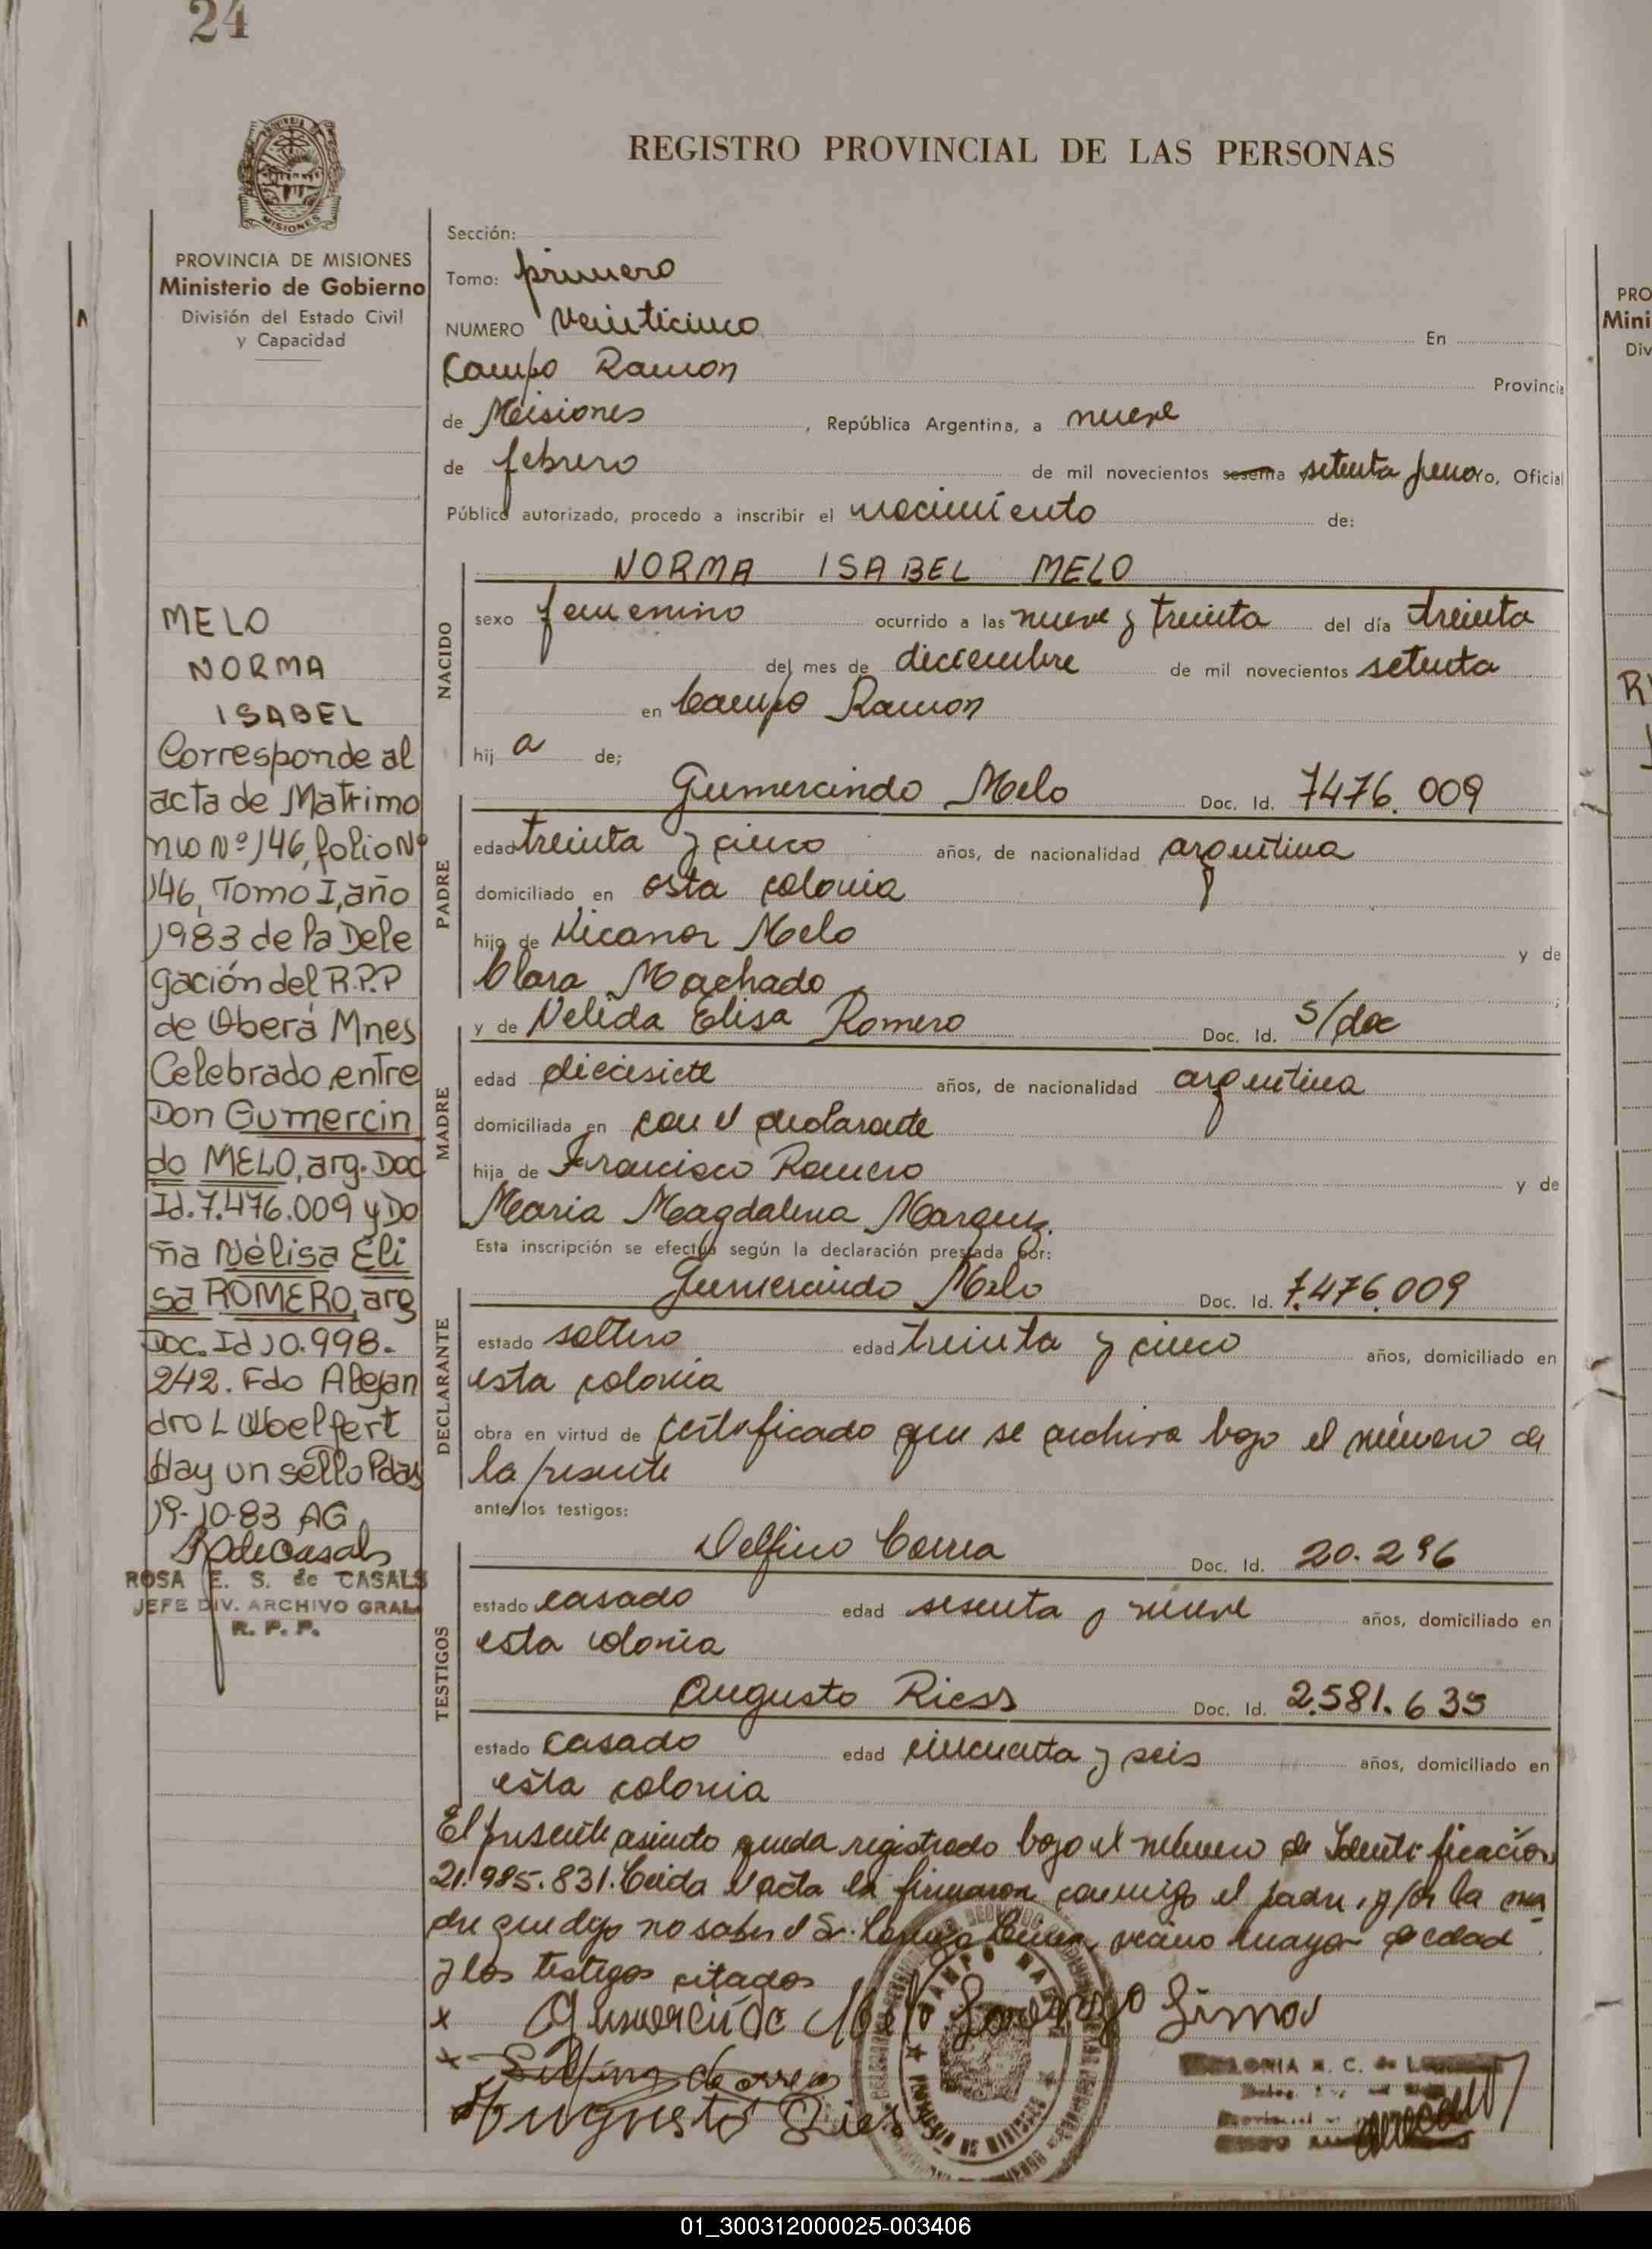 24
REGISTRO PROVINCIAL DE LAS PERSONAS
MISIONES
PROVINCIA DE MISIONES
Ministerio de Gobierno
División del Estado Civil
y Capacidad
MELO
NORMA
ISABEL
Corresponde al
acta de Matrimo
nio Nº 146, folio Nº
146, Tomo I, año
1983 de la Dele
gación del R.P.P
de Oberá Mnes
Celebrado entre
Don Gumercin
do MELO, arg. Doc
Id. 7.476.009 y Do
ña Nélisa Eli
sa ROMERO, arg
Doc. Id 10.998.
242. Fdo Alejan
dro L Woelfert
Hay un sello Pdas
19-10-83 AG
ROSA E. S. de CASALS
JEFE DIV. ARCHIVO GRAL
R. P. P.
Sección:
Tomo: primero
NUMERO veinticinco En
Campo Ramon Provincia
de Misiones , República Argentina, a nueve
de febrero de mil novecientos setenta y uno, Oficial
Público autorizado, procedo a inscribir el nacimiento de:
NACIDO
NORMA ISABEL MELO
sexo femenino ocurrido a las nueve y treinta del día treinta
del mes de diciembre de mil novecientos setenta
en Campo Ramon
hij a de;
PADRE
Gumercindo Melo Doc. Id. 7476.009
edad treinta y cinco años, de nacionalidad argentina
domiciliado en esta colonia
hijo de Nicanor Melo y de
Clara Machado
MADRE
y de Nelida Elisa Romero Doc. Id. s/doc
edad diecisiete años, de nacionalidad argentina
domiciliada en con el declarante
hija de Francisco Romero y de
Maria Magdalena Marquez.
Esta inscripción se efectúa según la declaración prestada por:
DECLARANTE
Gumercindo Melo Doc. Id. 7.476.009
estado soltero edad treinta y cinco años, domiciliado en
esta colonia
obra en virtud de certificado que se archiva bajo el número de
la presente
ante los testigos:
TESTIGOS
Delfino Correa Doc. Id. 20.296
estado casado edad sesenta y nueve años, domiciliado en
esta colonia
Augusto Riess Doc. Id. 2.581.639
estado casado edad cincuenta y seis años, domiciliado en
esta colonia
El presente asiento queda registrado bajo el número de Identificación
21.985.831. Leida el acta la firmaron conmigo el padre, y por la ma
dre que dijo no saber el Sr. vecino mayor de edad
y los testigos citados
x Gumercindo Melo Lorenzo Lima
x Delfino Correa
Augusto Riess
CAMPO RAMON
PROVINCIA DE MISIONES
01_300312000025-003406